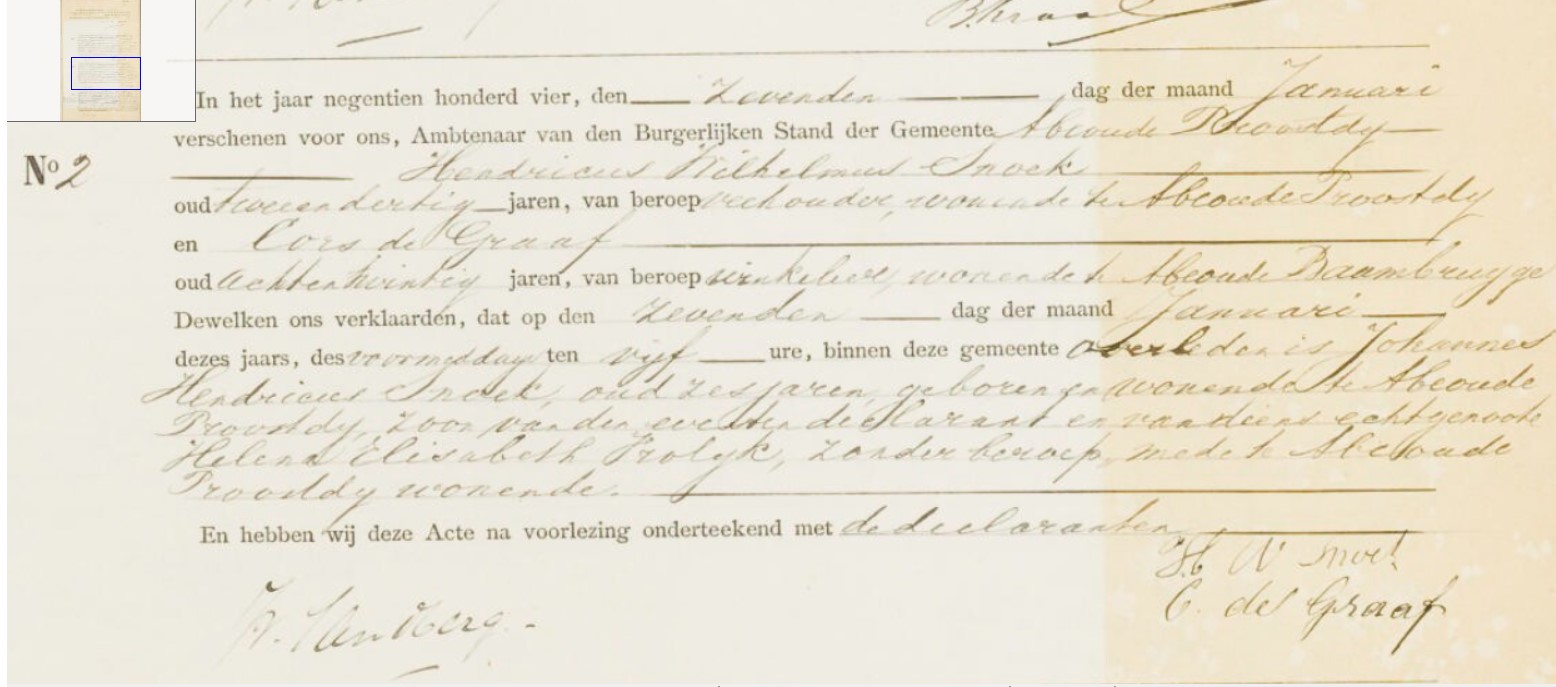 In het jaar negentien honderd vier, den zevenden dag der maand Januari
verschenen voor ons, Ambtenaar van den Burgerlijken Stand der Gemeente Abcoude Proostdy
No 2
Hendricus Wilhelmus Snoek
oud tweeendertig jaren, van beroep veehouder, wonende te Abcoude Proostdy
en Cors de Graaf
oud achtentwintig jaren, van beroep winkelier, wonende te Abcoude Baambrugge
Dewelken ons verklaarden, dat op den zevenden dag der maand Januari
dezes jaars, des voormiddags ten vijf ure, binnen deze gemeente overleden is Johannes
Hendricus Snoek, oud zes jaren, geboren en wonende te Abcoude
Proostdy, zoon van den eersten declarant en van diens echtgenoote
Helena Elisabeth Prolyk, zonder beroep, mede te Abcoude
Proostdy wonende.
En hebben wij deze Acte na voorlezing onderteekend met de declaranten
H W Snoek
C. de Graaf